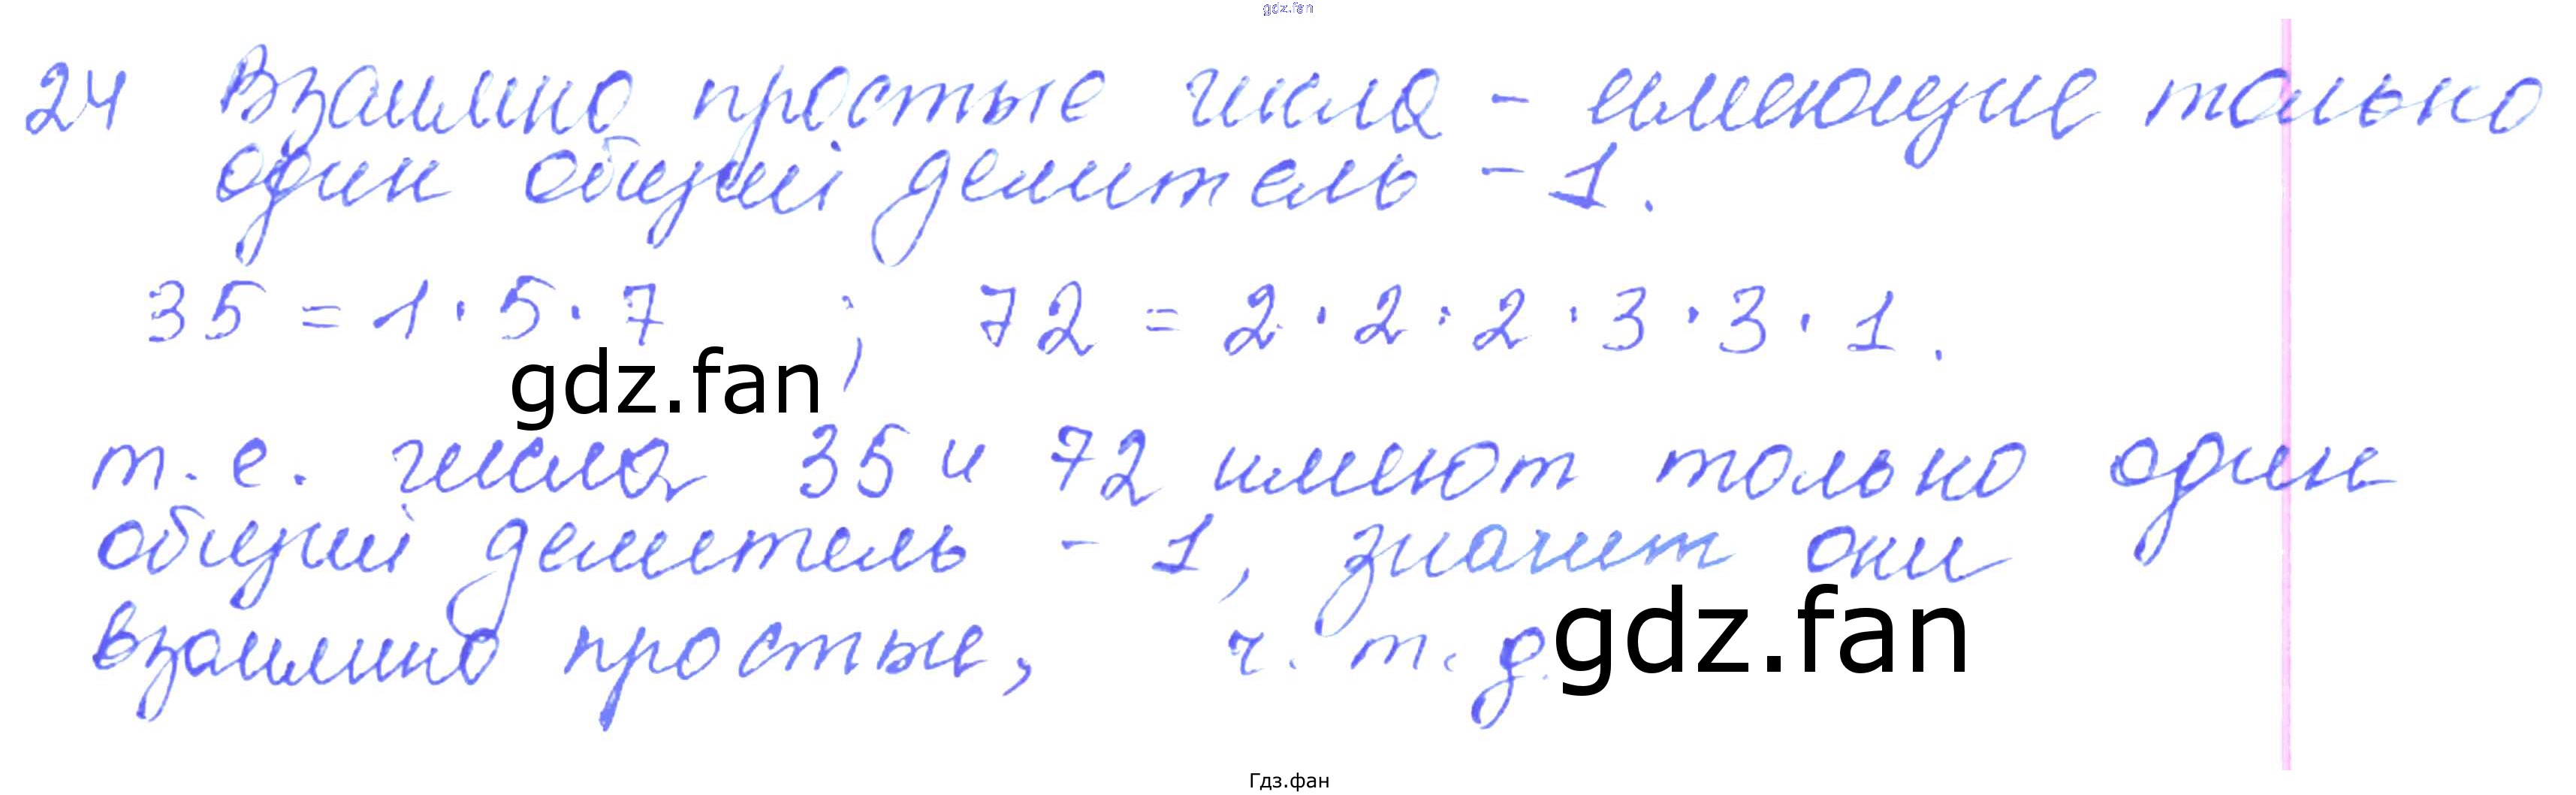 gdz.fan
24 Взаимно простые числа - имеющие только
один общий делитель - 1.
35 = 1 · 5 · 7 ; 72 = 2 · 2 · 2 · 3 · 3 · 1.
gdz.fan
т. е. числа 35 и 72 имеют только один
общий делитель - 1, значит они
взаимно простые, ч. т. д.
gdz.fan
Гдз.фан